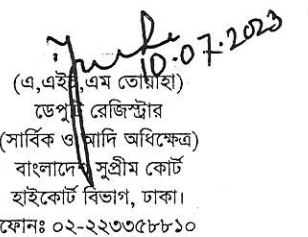 10.07.2023
(এ,এইচ,এম তোয়াহা)
ডেপুটি রেজিস্ট্রার
(সার্বিক ও আদি অধিক্ষেত্র)
বাংলাদেশ সুপ্রীম কোর্ট
হাইকোর্ট বিভাগ, ঢাকা।
ফোনঃ ০২-২২৩৩৫৮৮১০